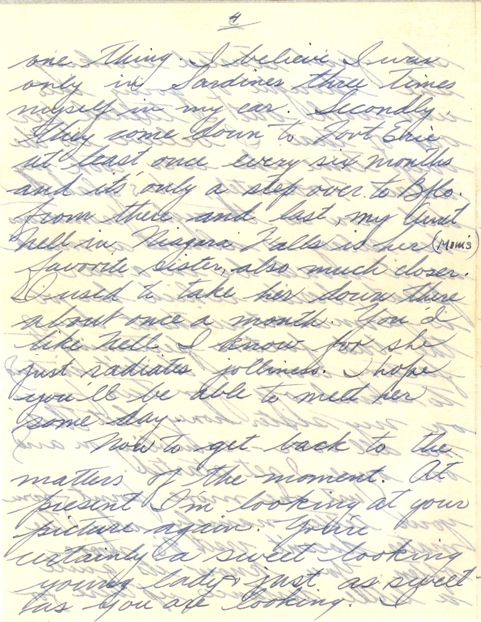 4
one thing. I believe I was
only in Sardines three times
myself in my car. Secondly
they come down to Fort Erie
at least once every six months
and it's only a step over to Bflo.
from there and last, my Aunt
Nell in Niagara Falls is her (Mom's)
favorite sister, also much closer.
I used to take her down there
about once a month. You'd
like Nell I know for she
just radiates jolliness. I hope
you'll be able to meet her
some day.
Now to get back to the
matters of the moment. At
present I'm looking at your
picture again. You're
certainly a sweet looking
young lady, just as sweet
as you are looking. I